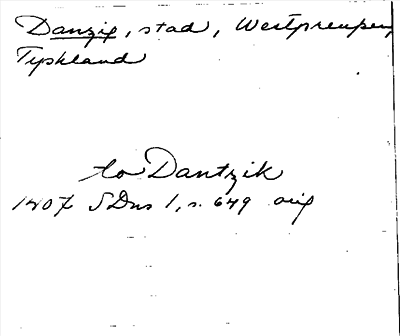 Danzig, stad, Westpreußen,
Tyskland
to Dantzik
1407 SDns 1, s. 649 orig